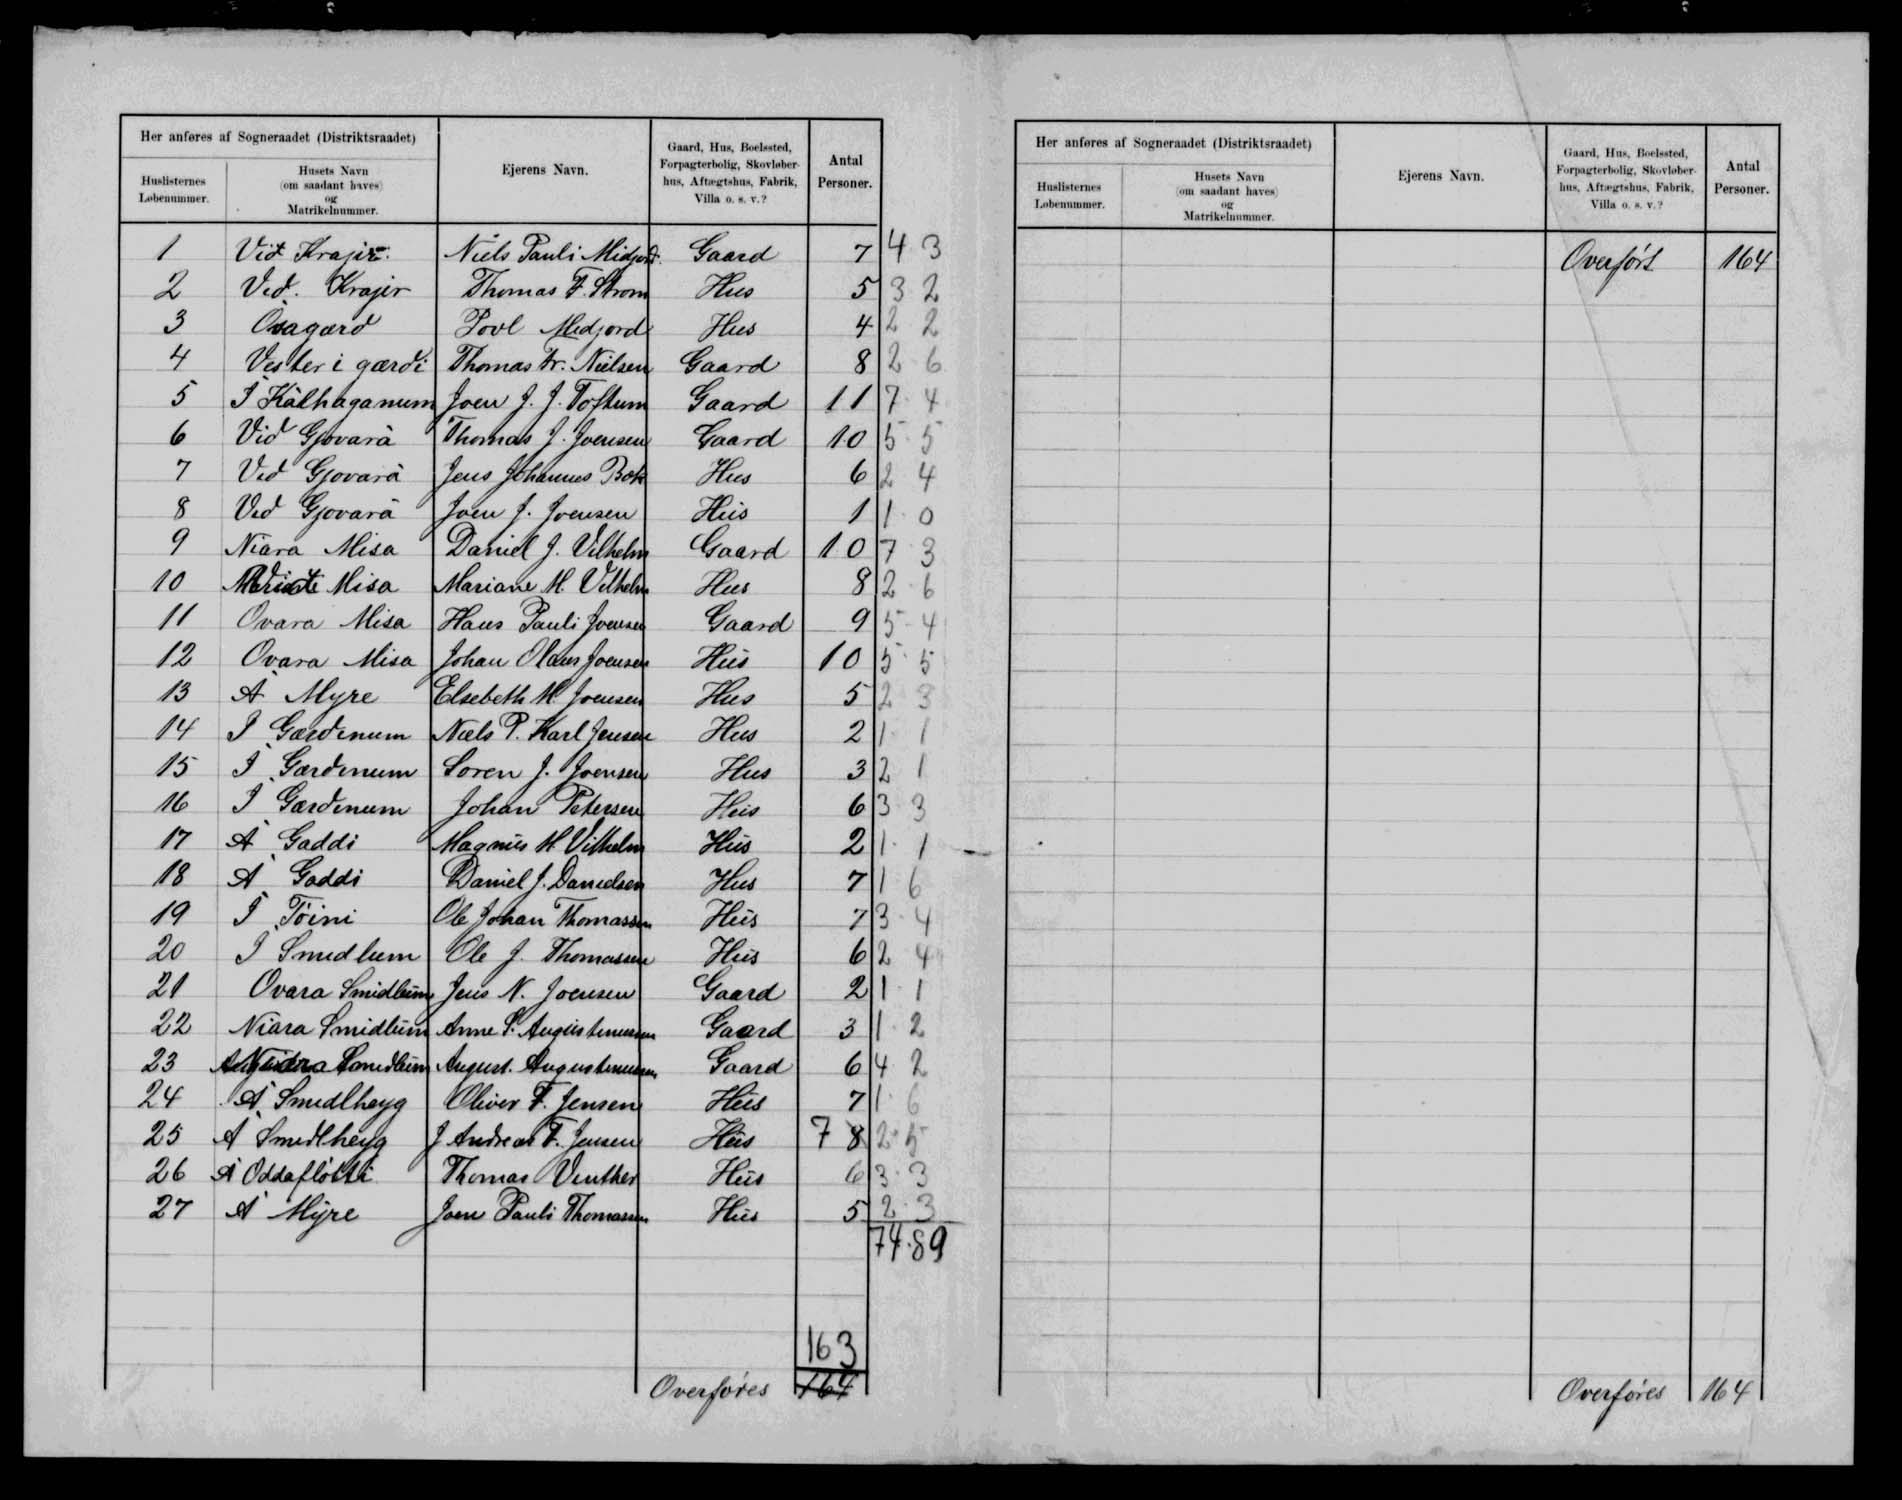 Her anføres af Sogneraadet (Distriktsraadet)
Huslisternes Løbenummer.
Husets Navn (om saadant haves) og Matrikelnummer.
Ejerens Navn.
Gaard, Hus, Boelssted, Forpagterbolig, Skovløberhus, Aftægtshus, Fabrik, Villa o. s. v.?
Antal Personer.
1 Vid Krajir. Niels Pauli Midjord. Gaard 7 4 3
2 Vid. Krajir Thomas F. Strom Hus 5 3 2
3 Ovagærd Povl Midjord Hus 4 2 2
4 Vester i gærdi Thomas Fr. Nielsen Gaard 8 2 6
5 I Kálhaganum Joen J. J. Toftum Gaard 11 7 4
6 Vid Gjovará Thomas J. Joensen Gaard 10 5 5
7 Vid Gjovará Jens Johannes Bek Hus 6 2 4
8 Vid Gjovará Joen J. Joensen Hus 1 1 0
9 Niara Misa Daniel J. Vilhelm Gaard 10 7 3
10 Misa Mariane M. Vilhelm Hus 8 2 6
11 Ovara Misa Hans Pauli Joensen Gaard 9 5 4
12 Ovara Misa Johan Olaus Joensen Hus 10 5 5
13 Á Myre Elsebeth M. Joensen Hus 5 2 3
14 I Gærdinum Niels P. Karl Jensen Hus 2 1 1
15 I Gærdinum Soren J. Joensen Hus 3 2 1
16 I Gærdinum Johan Petersen Hus 6 3 3
17 Á Gaddi Magnus M. Vilhelm Hus 2 1 1
18 Á Gaddi Daniel J. Danielsen Hus 7 1 6
19 I Töini Ole Johan Thomassen Hus 7 3 4
20 I Smidlum Ole J. Thomassen Hus 6 2 4
21 Ovara Smidlum Jens N. Joensen Gaard 2 1 1
22 Niara Smidlum Anne S. Augustinussen Gaard 3 1 2
23 Smidlum August. Augustinussen Gaard 6 4 2
24 Á Smidlheyg Oliver F. Jensen Hus 7 1 6
25 Á Smidlheyg J Andreas F. Jensen Hus 7 8 2 5
26 Á Oddaflötti Thomas Vinther Hus 6 3 3
27 Á Myre Joen Pauli Thomassen Hus 5 2 3
74.89
163
Overføres 164
Her anføres af Sogneraadet (Distriktsraadet)
Huslisternes Løbenummer.
Husets Navn (om saadant haves) og Matrikelnummer.
Ejerens Navn.
Gaard, Hus, Boelssted, Forpagterbolig, Skovløberhus, Aftægtshus, Fabrik, Villa o. s. v.?
Antal Personer.
Overført 164
Overføres 164